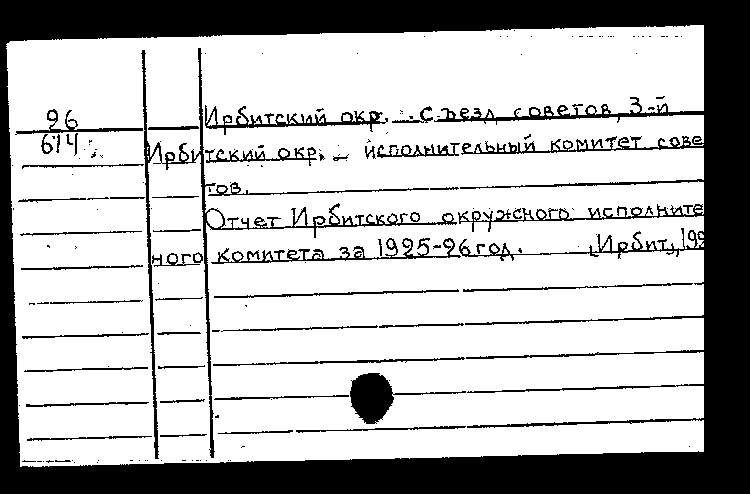 26
614
Ирбитский окр. Съезд советов, 3-й
Ирбитский окр. – исполнительный комитет сове
тов.
Отчет Ирбитского окружного исполните
ного комитета за 1925-26 год. [Ирбит], 192